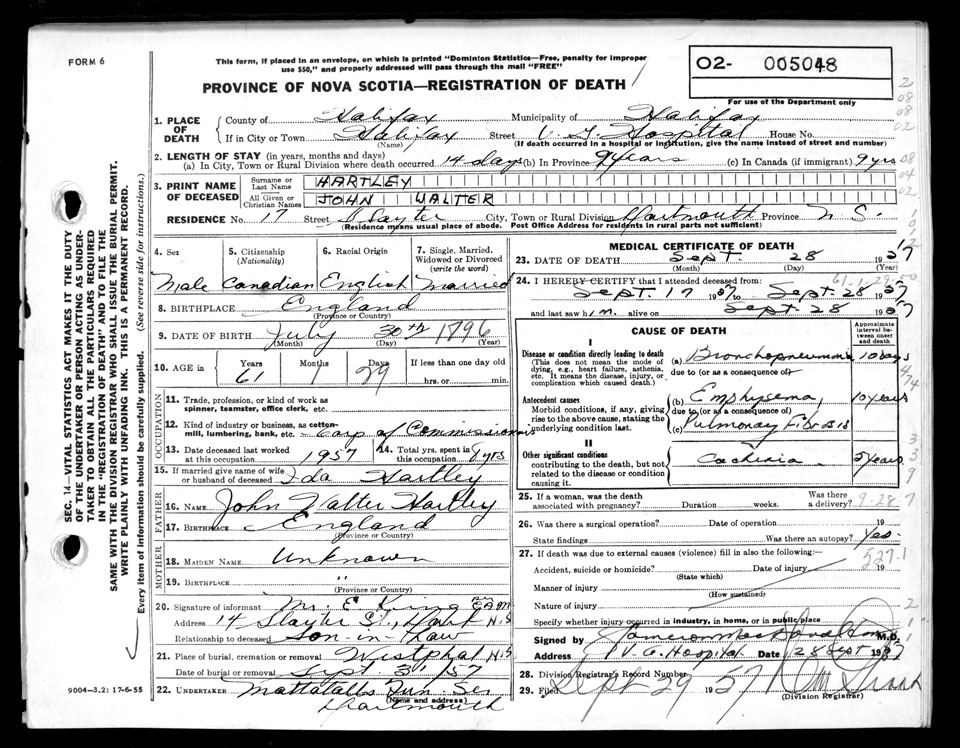 FORM 6
This form, if placed in an envelope, on which is printed "Dominion Statistics—Free, penalty for improper
use $50," and properly addressed will pass through the mail "FREE"
PROVINCE OF NOVA SCOTIA—REGISTRATION OF DEATH
O2- 005048
For use of the Department only
1. PLACE OF DEATH
County of Halifax Municipality of Halifax
If in City or Town Halifax Street V. G. Hospital House No.
(Name) (If death occurred in a hospital or institution, give the name instead of street and number)
2. LENGTH OF STAY (in years, months and days)
(a) In City, Town or Rural Division where death occurred 14 days (b) In Province 9 years (c) In Canada (if immigrant) 9 yrs
3. PRINT NAME OF DECEASED
Surname or Last Name HARTLEY
All Given or Christian Names JOHN WALTER
RESIDENCE No. 17 Street Slayter City, Town or Rural Division Dartmouth Province N S.
(Residence means usual place of abode. Post Office Address for residents in rural parts not sufficient)
4. Sex Male
5. Citizenship (Nationality) Canadian
6. Racial Origin English
7. Single, Married, Widowed or Divorced (write the word) Married
8. BIRTHPLACE England
(Province or Country)
9. DATE OF BIRTH July 30th 1896
(Month) (Day) (Year)
10. AGE in Years 61 Months 1 Days 29 If less than one day old
hrs. or min.
OCCUPATION
11. Trade, profession, or kind of work as
spinner, teamster, office clerk, etc.
12. Kind of industry or business, as cotton-
mill, lumbering, bank, etc. Corp of Commissionairs
13. Date deceased last worked at this occupation 1957 14. Total yrs. spent in this occupation yrs
15. If married give name of wife
or husband of deceased Ida Hartley
FATHER
16. NAME John Walter Hartley
17. BIRTHPLACE England
(Province or Country)
MOTHER
18. MAIDEN NAME Unknown
19. BIRTHPLACE "
(Province or Country)
20. Signature of informant Mr. E. King
Address 14 Slayter St., Dart N.S
Relationship to deceased Son-in-law
21. Place of burial, cremation or removal Westphal N.S
Date of burial or removal Sept 3 /57
22. UNDERTAKER Mattatalls Fun. Ser
(Name and address)
Dartmouth
9004-3.2: 17-6-55
MEDICAL CERTIFICATE OF DEATH
23. DATE OF DEATH Sept. 28 1957
(Month) (Day) (Year)
24. I HEREBY CERTIFY that I attended deceased from:
Sept. 17 1957 to Sept. 28 1957
and last saw him alive on Sept 28 1957
CAUSE OF DEATH
Approximate interval between onset and death
I
Disease or condition directly leading to death
(This does not mean the mode of dying, e.g., heart failure, asthenia, etc. It means the disease, injury, or complication which caused death.)
(a) Bronchopneumonia 10 days
due to (or as a consequence of)
Antecedent causes
Morbid conditions, if any, giving rise to the above cause, stating the underlying condition last.
(b) Emphysema, 10 years
due to (or as a consequence of)
(c) Pulmonary Fibrosis
II
Other significant conditions
contributing to the death, but not related to the disease or condition causing it.
Cachexia years
25. If a woman, was the death associated with pregnancy? Duration weeks. Was there a delivery? 9-28-7
26. Was there a surgical operation? Date of operation 19
State findings Was there an autopsy? Yes.
27. If death was due to external causes (violence) fill in also the following:—
Accident, suicide or homicide? Date of injury 19
(State which)
527.1
Manner of injury
(How sustained)
Nature of injury
Specify whether injury occurred in industry, in home, or in public place
Signed by M.D.
Address V. G. Hospital Date 28 Sept 1957
28. Division Registrar's Record Number
29. Filed Sept 29 1957
(Division Registrar)
SEC. 14—VITAL STATISTICS ACT MAKES IT THE DUTY
OF THE UNDERTAKER OR PERSON ACTING AS UNDER-
TAKER TO OBTAIN ALL THE PARTICULARS REQUIRED
IN THE "REGISTRATION OF DEATH" AND TO FILE THE
SAME WITH THE DIVISION REGISTRAR WHO SHALL ISSUE THE BURIAL PERMIT.
WRITE PLAINLY WITH UNFADING INK. THIS IS A PERMANENT RECORD.
Every item of information should be carefully supplied. (See reverse side for instructions.)